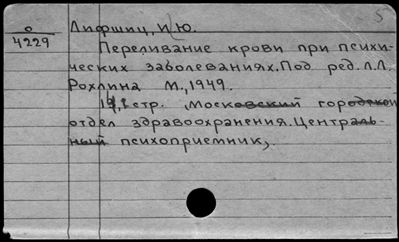 о
4229
Лифшиц, И. Ю.
Переливание крови при психи-
ческих заболеваниях. Под ред. Л.Л.
Рохлина М., 1949.
стр. (Московский городской
отдел здравоохранения. Централь-
ный психоприемник).